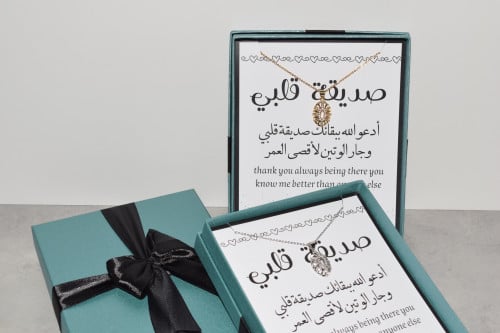 صديقة قلبي
أدعو الله ببقائك صديقة قلبي
وجار الوتين لأقصى العمر
thank you always being there you
know me better than else
صديقة قلبي
أدعو الله ببقائك صديقة قلبي
وجار الوتين لأقصى العمر
always being there you
than anyone else